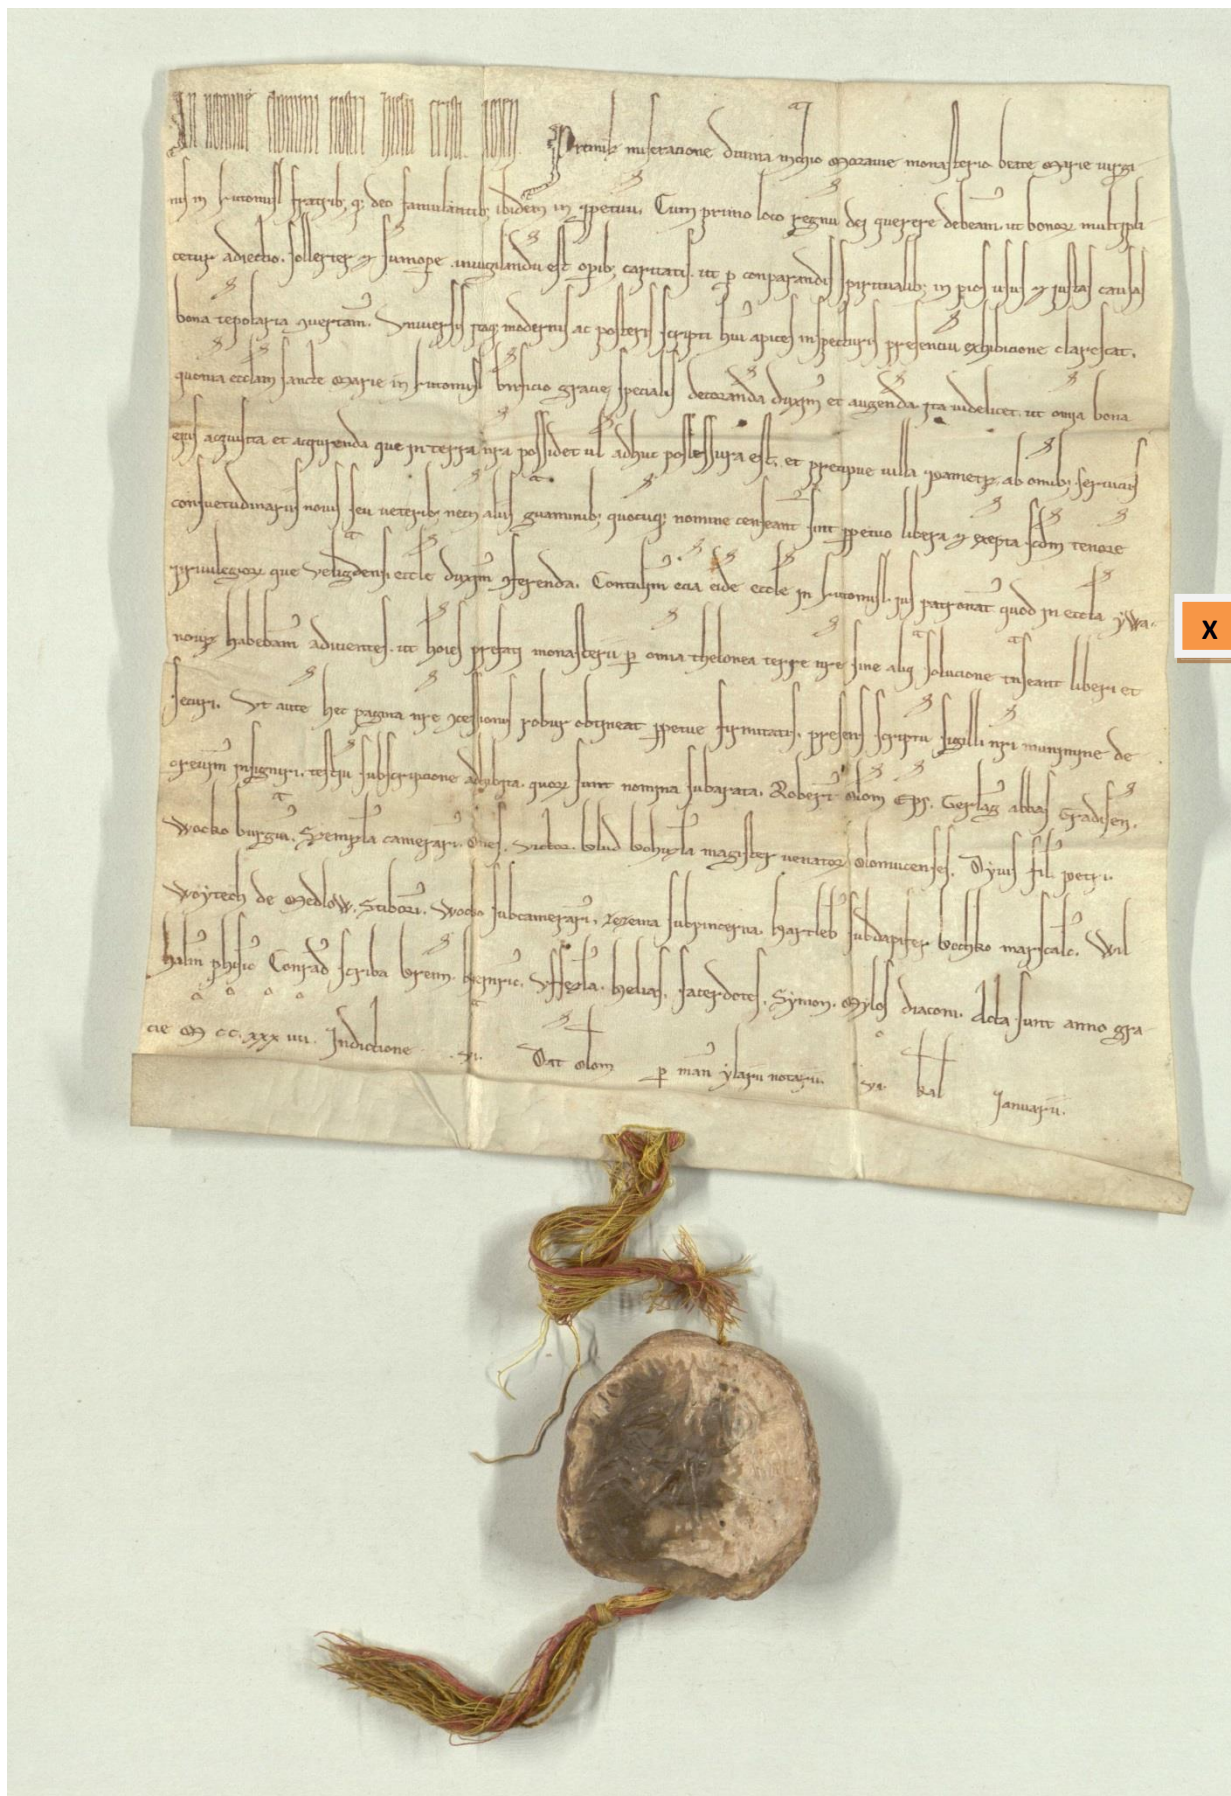 In nomine domini nostri Jhesu Cristi
Premisl miseracione divina mchio Moravie monasterio beate Marie virgi
nis in Lutomisl fratrib; q; deo famulantib; ibidem in ppetuu. Cum primo loco regnu dei querere debeam. ut bonor multipli
cetur adiectio. sollerter et sumope invigilandu est opib; caritatis. ut p conparandis spiritualib; in pios usus et justas causas
bona tepolaria vertam. Universis itaq; modernis ac posteris scripti hui apices inspecturis presenciu exhibicione clarescat.
quonia eccliam sancte Marie in Lutomisl bnficio specialis decoranda duxim et augenda. ita videlicet. ut omia bona
eius acquisita et acquirenda que in terra nra possidet ul adhuc possessura est. et precipue villa ab omib; serviciis
consuetudinariis novis seu veterib; necn aliis gvaminib; quocuq; nomine censeant sint ppetuo libera et exepta scdm tenore
privilegior que eccle duxim 9ferenda. Contulim ecia eide eccle in Lutomisl. jus patronat quod in eccla ywa-
novic habebam adicientes. ut hoies prefati monasterii p omia thelonea terre nre sine aliq solucione tnseant liberi et
securi. Ut aute hec pagina nre 9cessionis robur obtineat ppetue firmitatis. presens scriptu sigilli nri munimine de
crevim insigniri. testiu subscripcione adhibita. quor sunt nomina subarata. Robert olom eps. Gerlag abbas Gradisen.
Wocko burgvi. camerari. Victor. blud magister venator olomucenses. fil petri.
Woytech de Medlow. Stibori. Wocko subcamerari. subpincerna. Hartleb subdapifer bochko marscalc. Wil
halm phisic Conrad scriba breviu. Heinric. Helias. sacerdotes. Symon. Mylos diaconi. Acta sunt anno gra-
cie M CC. xxx iiii. Indictione . vi. Dat olom p man ylarii notarii. vi. kal Januarii.
X